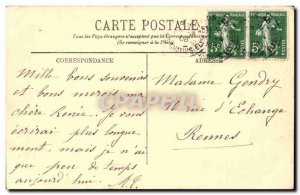 CARTE POSTALE
Tous les Pays étrangers n'acceptent pas la Correspondance
(Se renseigner à la Poste)
CORRESPONDANCE
ADRESSE
Mille bons souvenirs
et bons mercis, ma
chère Renée. Je vous
écrirai plus longue
ment, mais je n'ai
que peu de temps
aujourd'hui.
Madame Gendry
rue d'Echange
Rennes